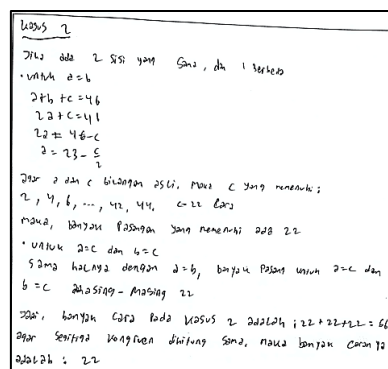 Kasus 2
Jika ada 2 sisi yang sama, dan 1 berbeda
• untuk a=b
a+b+c=46
2a+c=46
2a = 46-c
a = 23 - c/2
agar a dan c bilangan asli, maka c yang memenuhi ;
2, 4, 6, ..., 42, 44. ← 22 cara
maka, banyak pasangan yang memenuhi ada 22
• untuk a=c dan b=c
sama halnya dengan a=b, banyak pasang untuk a=c dan
b=c masing-masing 22
Jadi, banyak cara pada kasus 2 adalah ; 22+22+22=66
agar segitiga kongruen dihitung sama, maka banyak caranya
adalah : 22